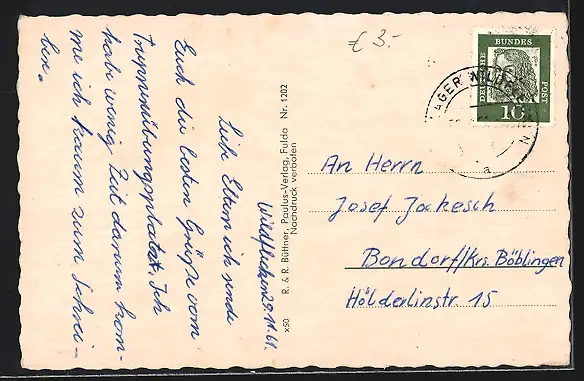 € 3.-
Wildflecken 29.11.61.
Liebe Eltern ich sende
Euch die besten Grüße vom
Truppenübungsplatz. Ich
habe wenig Zeit darum kom-
me ich kaum zum Schrei-
ben.
R. & R. Büttner, Paulus-Verlag, Fulda Nr. 1202
Nachdruck verboten
x50
DEUTSCHE BUNDES POST
10
LAGER WILDFLECKEN
a
An Herrn
Josef Jakesch
Bondorf/Krs. Böblingen
Hölderlinstr. 15